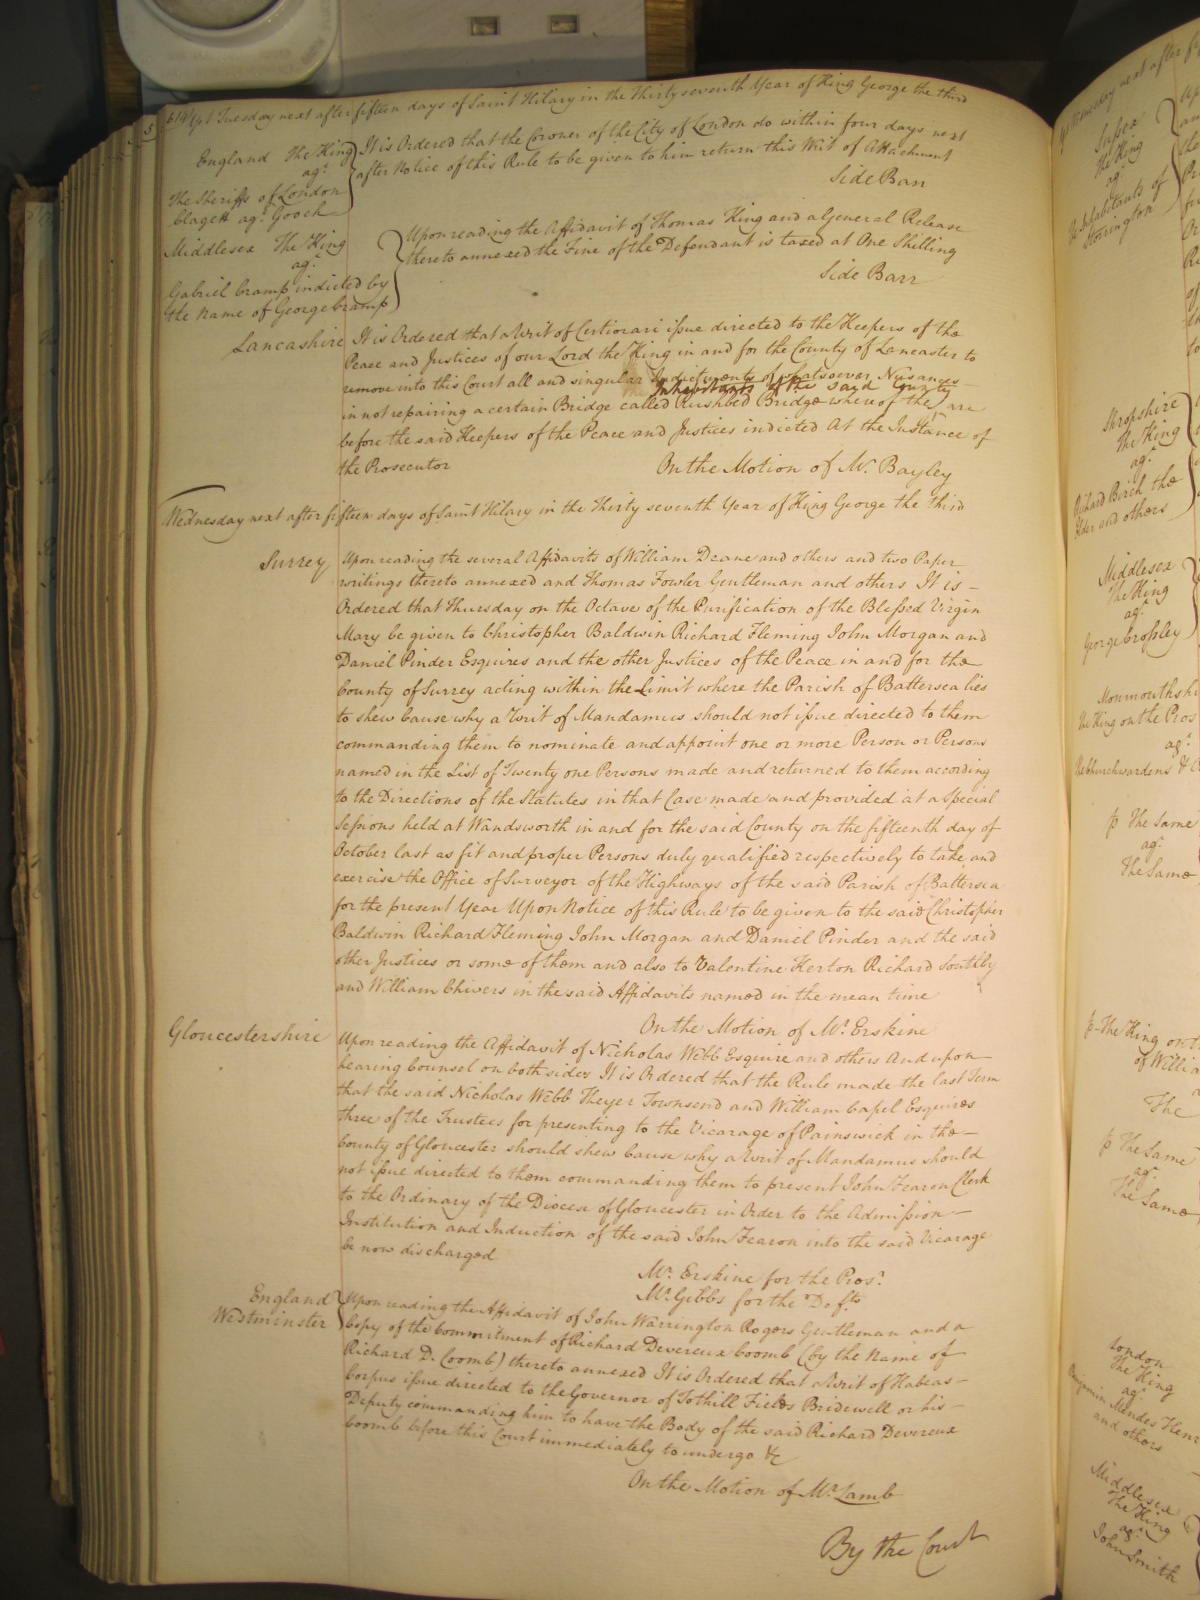 Tuesday next after fifteen days of Saint Hilary in the Thirty seventh Year of King George the third
England The King
agt
The Sheriffs of London
Clagett agt Gooch
It is Ordered that the Coroner of the City of London do within four days next
after Notice of this Rule to be given to him return this Writ of Attachment
Side Barr
Middlesex The King
agt
Gabriel Cramp indicted by
the Name of George Cramp
Upon reading the Affidavit of Thomas King and a General Release
thereto annexed the Fine of the Defendant is taxed at One Shilling
Side Barr
Lancashire
It is Ordered that a Writ of Certiorari issue directed to the Keepers of the
Peace and Justices of our Lord the King in and for the County of Lancaster to
remove into this Court all and singular Indictments of whatsoever Nusances
the Inhabitants of the said County
in not repairing a certain Bridge called Rushbed Bridge whereof the are
before the said Keepers of the Peace and Justices indicted At the Instance of
the Prosecutor
On the Motion of Mr. Bayley
Wednesday next after fifteen days of Saint Hilary in the Thirty seventh Year of King George the third
Surrey
Upon reading the several Affidavits of William Deane and others and two Paper
writings thereto annexed and Thomas Fowler Gentleman and others It is
Ordered that Thursday on the Octave of the Purification of the Blessed Virgin
Mary be given to Christopher Baldwin Richard Fleming John Morgan and
Daniel Pinder Esquires and the other Justices of the Peace in and for the
County of Surrey acting within the Limit where the Parish of Battersea lies
to shew Cause why a Writ of Mandamus should not issue directed to them
commanding them to nominate and appoint one or more Person or Persons
named in the List of Twenty one Persons made and returned to them according
to the Directions of the Statutes in that Case made and provided at a Special
Sessions held at Wandsworth in and for the said County on the fifteenth day of
October last as fit and proper Persons duly qualified respectively to take and
exercise the Office of Surveyor of the Highways of the said Parish of Battersea
for the present Year Upon Notice of this Rule to be given to the said Christopher
Baldwin Richard Fleming John Morgan and Daniel Pinder and the said
other Justices or some of them and also to Valentine Kerton Richard Southby
and William Chivers in the said Affidavits named in the mean time
On the Motion of Mr. Erskine
Gloucestershire
Upon reading the Affidavit of Nicholas Webb Esquire and others And upon
hearing Counsel on both sides It is Ordered that the Rule made the last Term
that the said Nicholas Webb Theyer Townsend and William Capel Esquires
three of the Trustees for presenting to the Vicarage of Painswick in the
County of Gloucester should shew Cause why a Writ of Mandamus should
not issue directed to them commanding them to present John Fearon Clerk
to the Ordinary of the Diocese of Gloucester in Order to the Admission
Institution and Induction of the said John Fearon into the said Vicarage
be now discharged
Mr. Erskine for the Prosr.
Mr. Gibbs for the Defts
England
Westminster
Upon reading the Affidavit of John Warrington Rogers Gentleman and a
Copy of the Commitment of Richard Devereux Coomb (by the Name of
Richard D. Coomb) thereto annexed It is Ordered that a Writ of Habeas
Corpus issue directed to the Governor of Tothill Fields Bridewell or his
Deputy commanding him to have the Body of the said Richard Devereux
Coomb before this Court immediately to undergo &c
On the Motion of Mr. Lamb
By the Court
Sussex
The King
agt
The Inhabitants of
Storrington
Shropshire
The King
agt
Richard Birch the
Elder and others
Middlesex
The King
agt
George Crossley
The King on the Pros
agt
The Same
agt
The Same
The King on t
of Willia
The
The Same
agt
The Same
London
The King
agt
Benjamin Mendes Henr
and others
Middlesex
The King
agt
John Smith